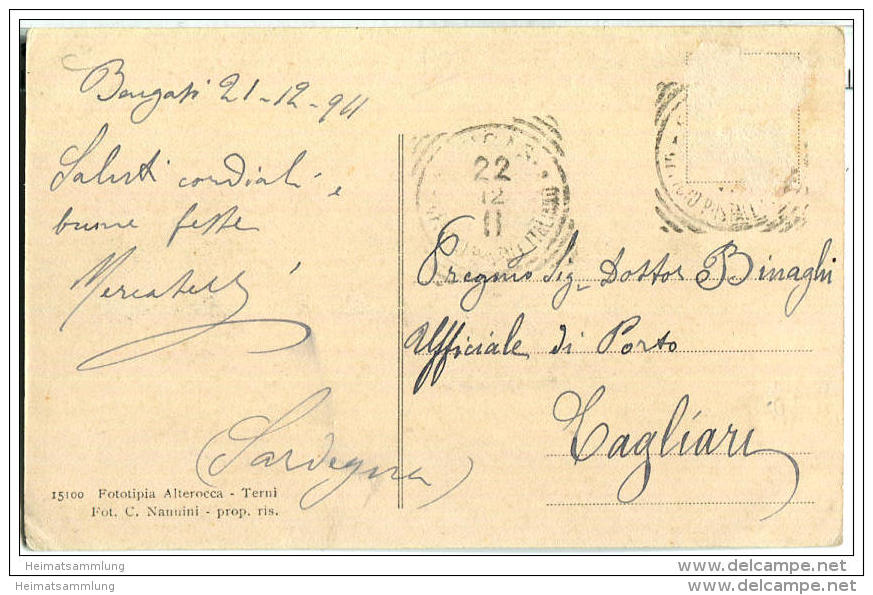 Bengasi 21-12-911
Saluti cordiali e
buone feste
Mercatelli
22
12
11
Pregmo Sig. Dottor Binaghi
Ufficiale di Porto
Cagliari
(Sardegna)
15100 Fototipia Alterocca - Terni
Fot. C. Nannini - prop. ris.
Heimatsammlung
Heimatsammlung
www.delcampe.net
www.delcampe.net